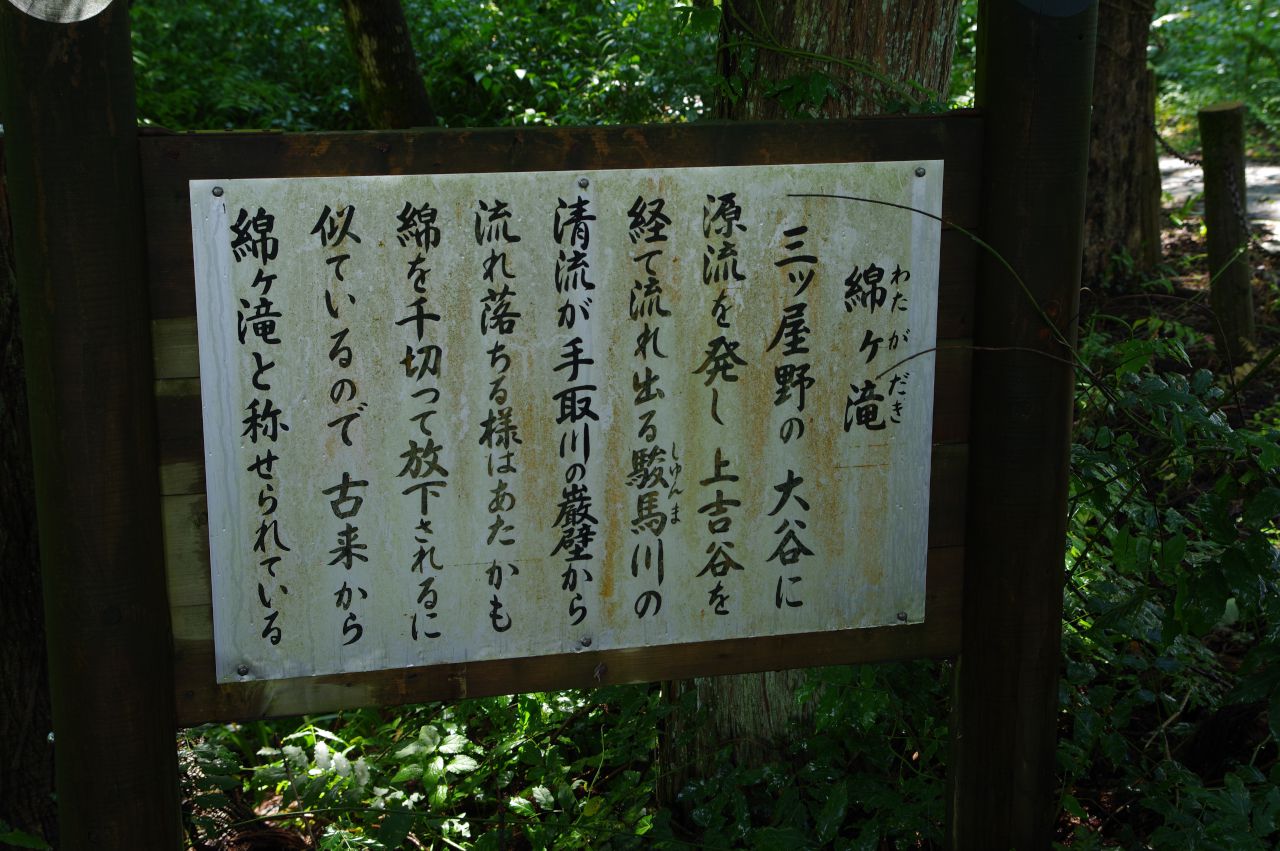 わたがだき
綿ヶ滝
三ツ屋野の大谷に
源流を発し上吉谷を
経て流れ出る駿馬川の
しゅんま
清流が手取川の巌壁から
流れ落ちる様はあたかも
綿を千切つて放下されるに
似ているので古来から
綿ヶ滝と称せられている